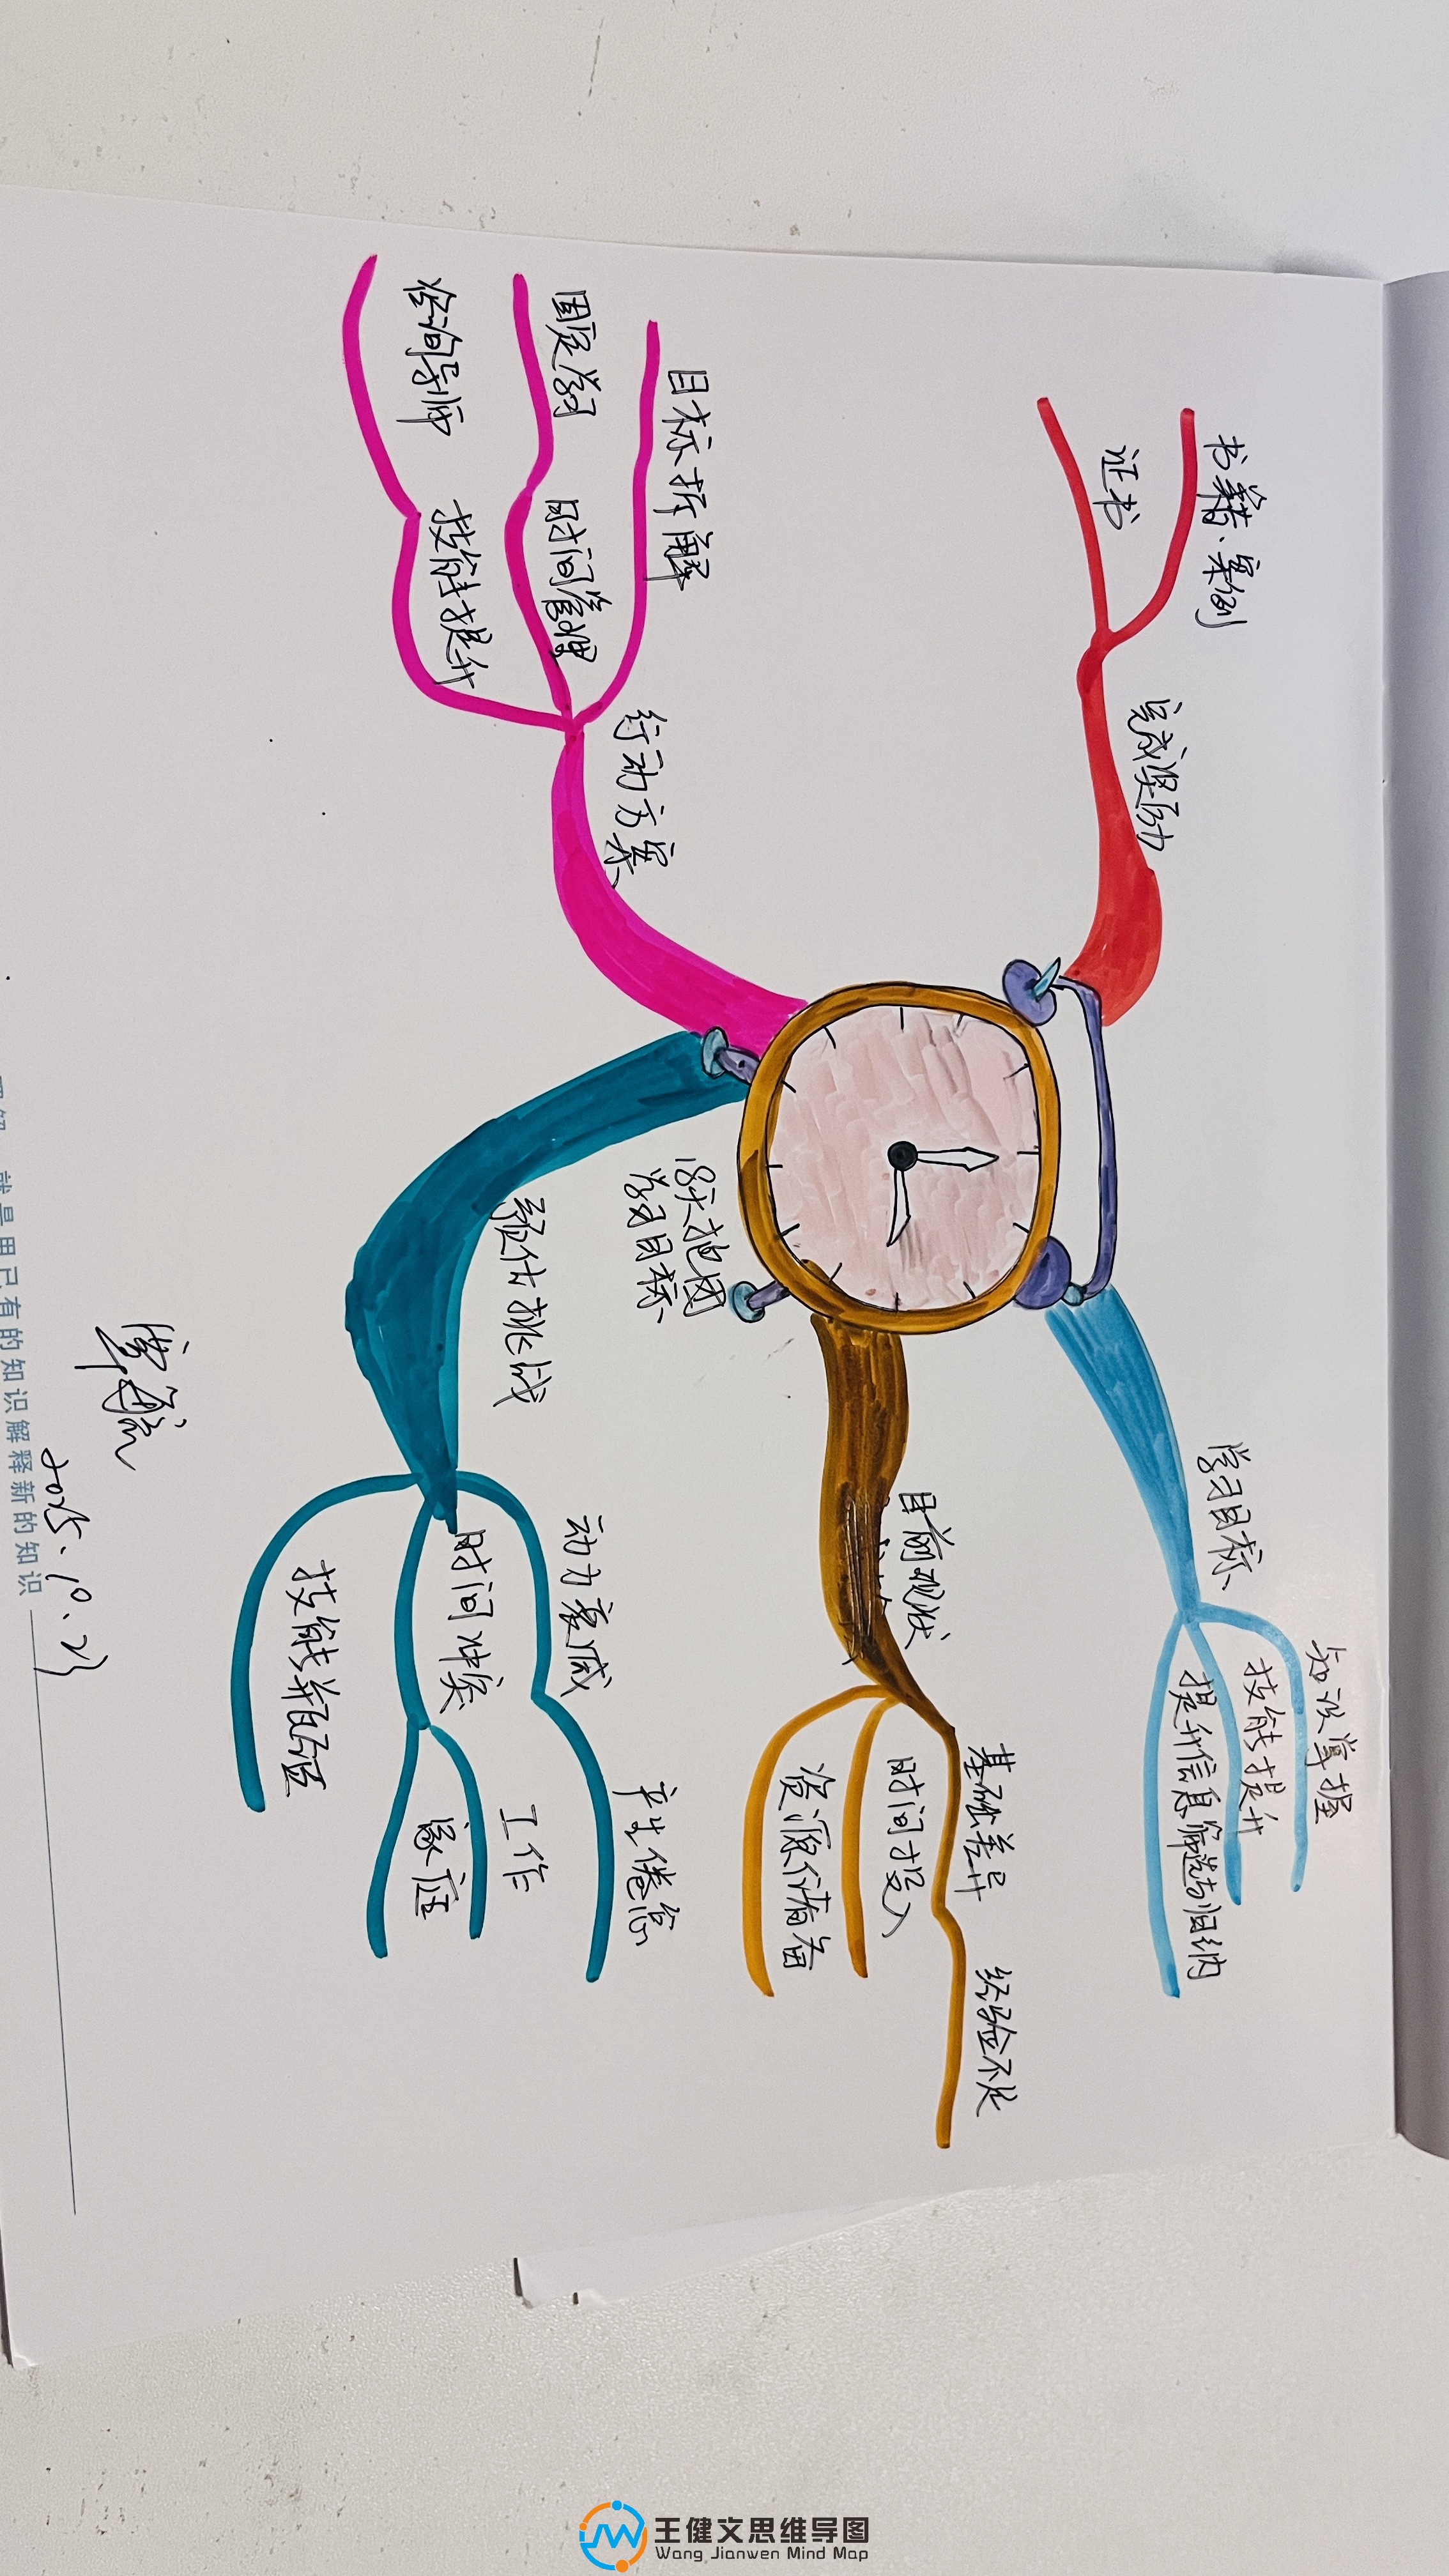 18天抱团
学习目标
学习目标
知识掌握
技能提升
提升信息筛选与归纳
目前现状
基础差异
经验不足
时间投入
资源储备
预估挑战
动力衰减
产生倦怠
时间冲突
工作
家庭
技能瓶颈
行动方案
目标拆解
时间管理
固定学习
技能提升
咨询导师
完成奖励
书籍、案例
证书
2025.10.23
就是用已有的知识解释新的知识
王健文思维导图
Wang Jianwen Mind Map